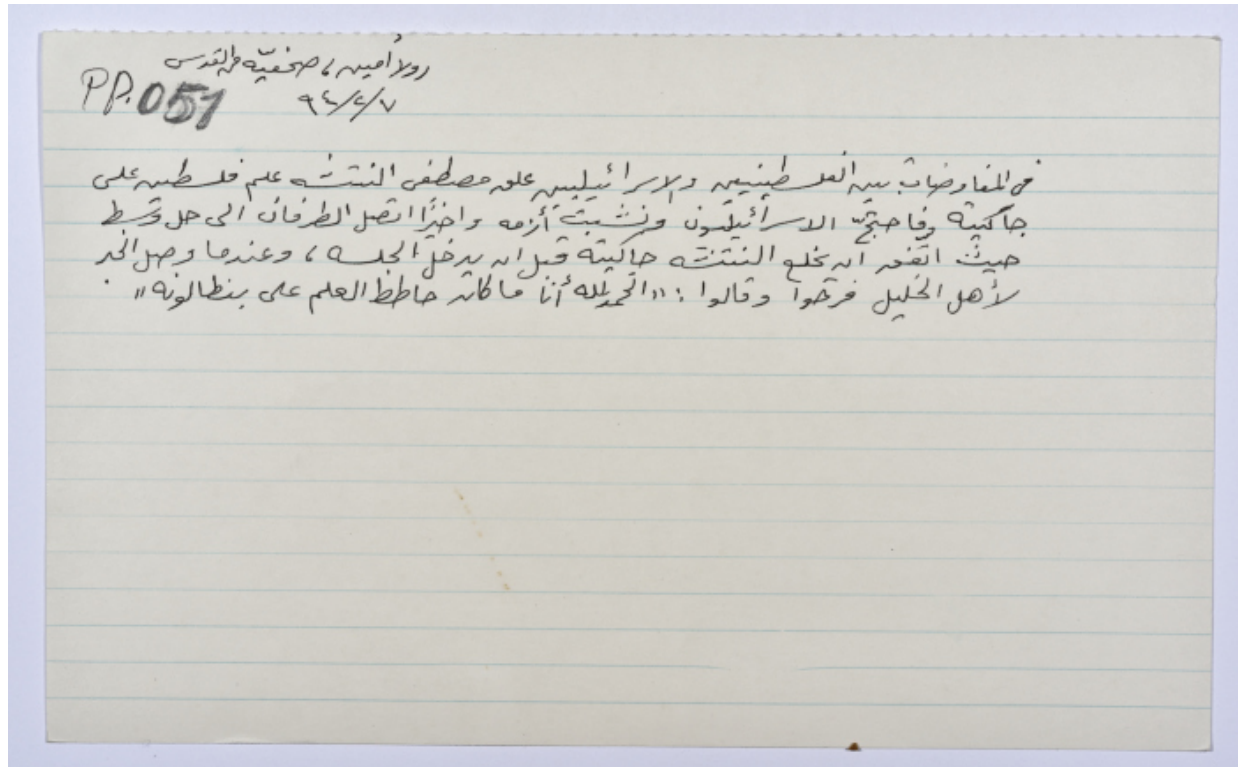 رولا أمين، صحفيّه من القدس
PP.051
٩٤/٢/٧
في المفاوضات بين الفلسطينيين والاسرائيليين علق مصطفى النتشه علم فلسطين على
جاكيته فاحتجّ الاسرائيليون ونشبت أزمه واخيرًا اتصل الطرفان الى حل وسط
حيث اتفق ان يخلع النتشه جاكيته قبل ان يدخل الجلسه، وعندما وصل الخبر
لأهل الخليل فرحوا وقالوا: "الحمدلله أنّا ما كان حاطط العلم على بنطالونه"